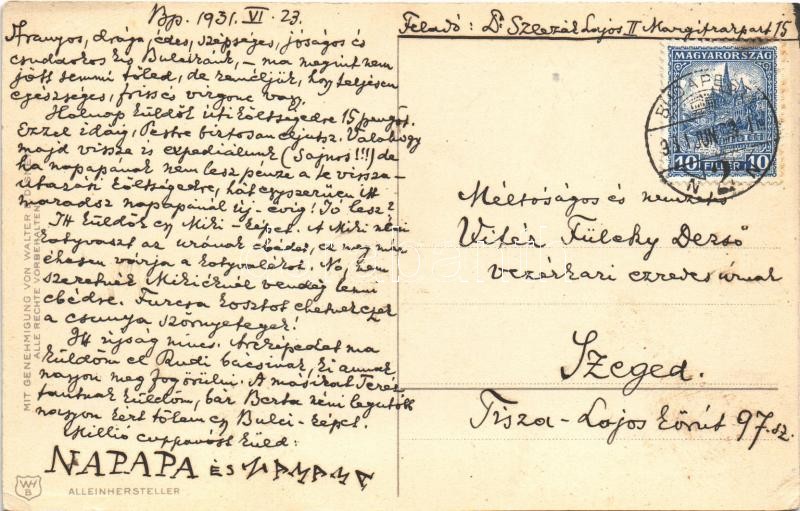 Bp. 1931. VI. 23.
Aranyos, drága, édes, szépséges, jóságos és
csudadoros kis Bulcikánk, – ma megint nem
jött semmi tőled, de reméljük, hogy teljesen
egészséges, friss és virgonc vagy.
Holnap küldök úti költségedre 15 pengőt.
Ezzel idáig, Pestre biztosan eljutsz. Valahogy
majd vissza is expediálunk (Sajnos!!!) de
ha napapának nem lesz pénze a te vissza-
utazási költségedre, hát egyszerűen itt
maradsz napapánál új-évig! Jó lesz?
Itt küldök egy Miki-képet. A Miki néni
kotyvaszt az urának ebédet, ez meg már
éhesen várja a kotyvalékot. No, nem
szeretnék Mikiéknél vendég lenni
ebédre. Furcsa kosztot ehetnek ezek
a csunya szörnyetegek!
Itt ujság nincs. Arcképedet ma
küldöm el Rudi bácsinak, ki annak
nagyon meg fog örülni. A másikat Teréz
tantnak küldöm, bár Berta néni legutóbb
nagyon kért tőlem egy Bulci-képet.
Millió cuppanóst küld:
NAPAPA ÉS NAMAMA
Feladó: Dr Szlezák Lajos II Margitrakpart 15
MAGYARORSZÁG
10 FILLÉR 10
BUDAPEST
Méltóságos és nemzetes
Vitéz Fülehy Dezső
vezérkari ezredes úrnak
Szeged.
Tisza-Lajos körút 97. sz.
MIT GENEHMIGUNG VON WALTER E. DISNEY
ALLE RECHTE VORBEHALTEN
WH
B
ALLEINHERSTELLER